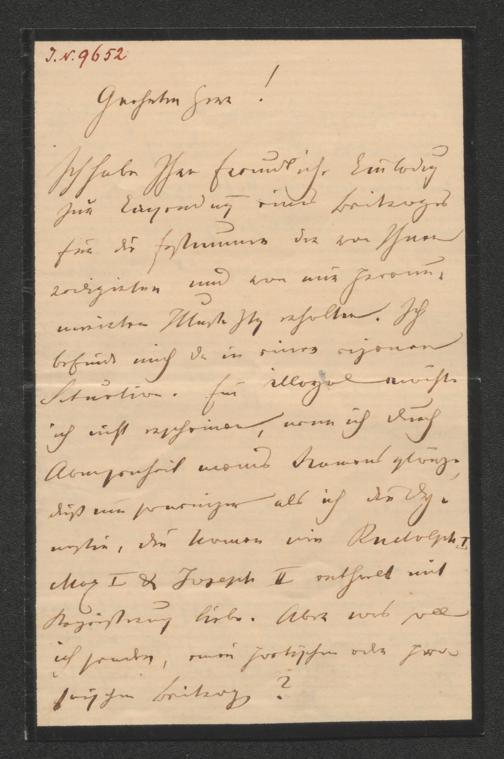 I.N. 9652
Geehrter Herr!
Ich habe Ihre freundliche Einladung
zur Einsendung eines Beitrages
für die Festnummer der von Ihnen
redigirten und von mir prænu-
merirten Illustr Ztg erhalten. Ich
befinde mich da in einer eigenen
Situation. Für illoyal möchte
ich nicht erscheinen, wenn ich durch
Abwesenheit meines Namens glänze,
dieß um so weniger als ich die Dy-
nastie, die Namen wie Rudolph I
Max I & Joseph II enthält mit
Begeisterung liebe. Aber was soll
ich senden, einen poetischen oder pro-
saischen Beitrag?